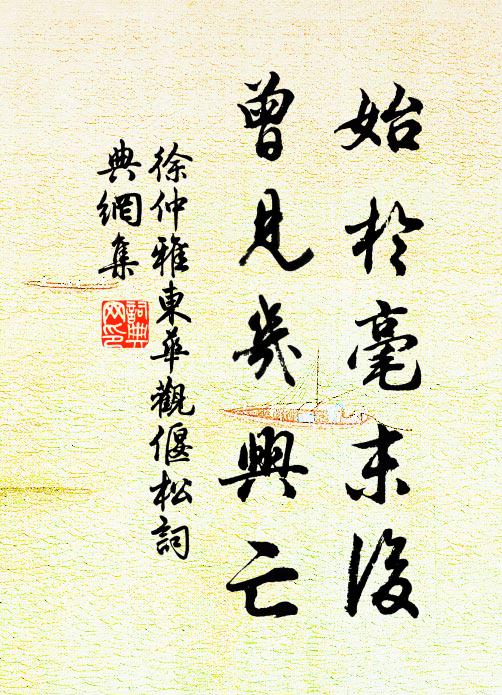 始於毫末後
曾見幾興亡
徐仲雅東華觀偃松詞
典網集
詞典
网印